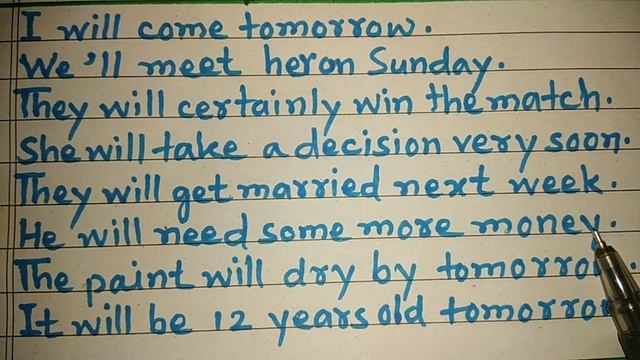 I will come tomorrow.
We'll meet her on Sunday.
They will certainly win the match.
She will take a decision very soon.
They will get married next week.
He will need some more money.
The paint will dry by tomorrow.
It will be 12 years old tomorrow